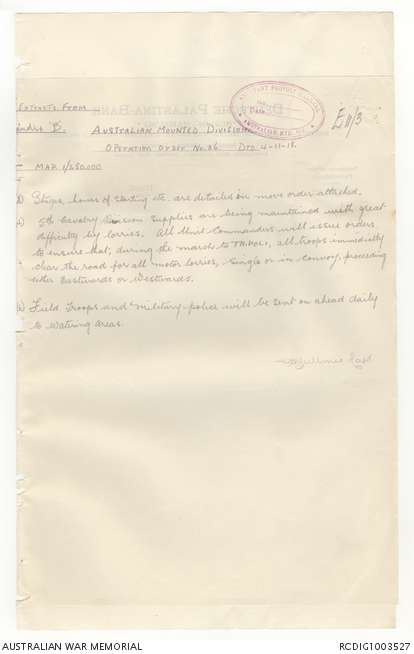 Extracts From
"B". Australian Mounted Division
Operation Order No. 26 Dtd 4-11-18.
E11/3
MAP 1/250.000
Stages, hours of starting etc. are detailed in move order attached.
5th Cavalry Division supplies are being maintained with great
difficulty by lorries. All Unit Commanders will issue orders
to ensure that, during the march to TRIPOLI, all troops immediately
clear the road for all motor lorries, single or in convoy, proceeding
either Eastwards or Westwards.
Field Troops and Military police will be sent on ahead daily
to watering areas.
AUSTRALIAN WAR MEMORIAL
RCDIG1003527